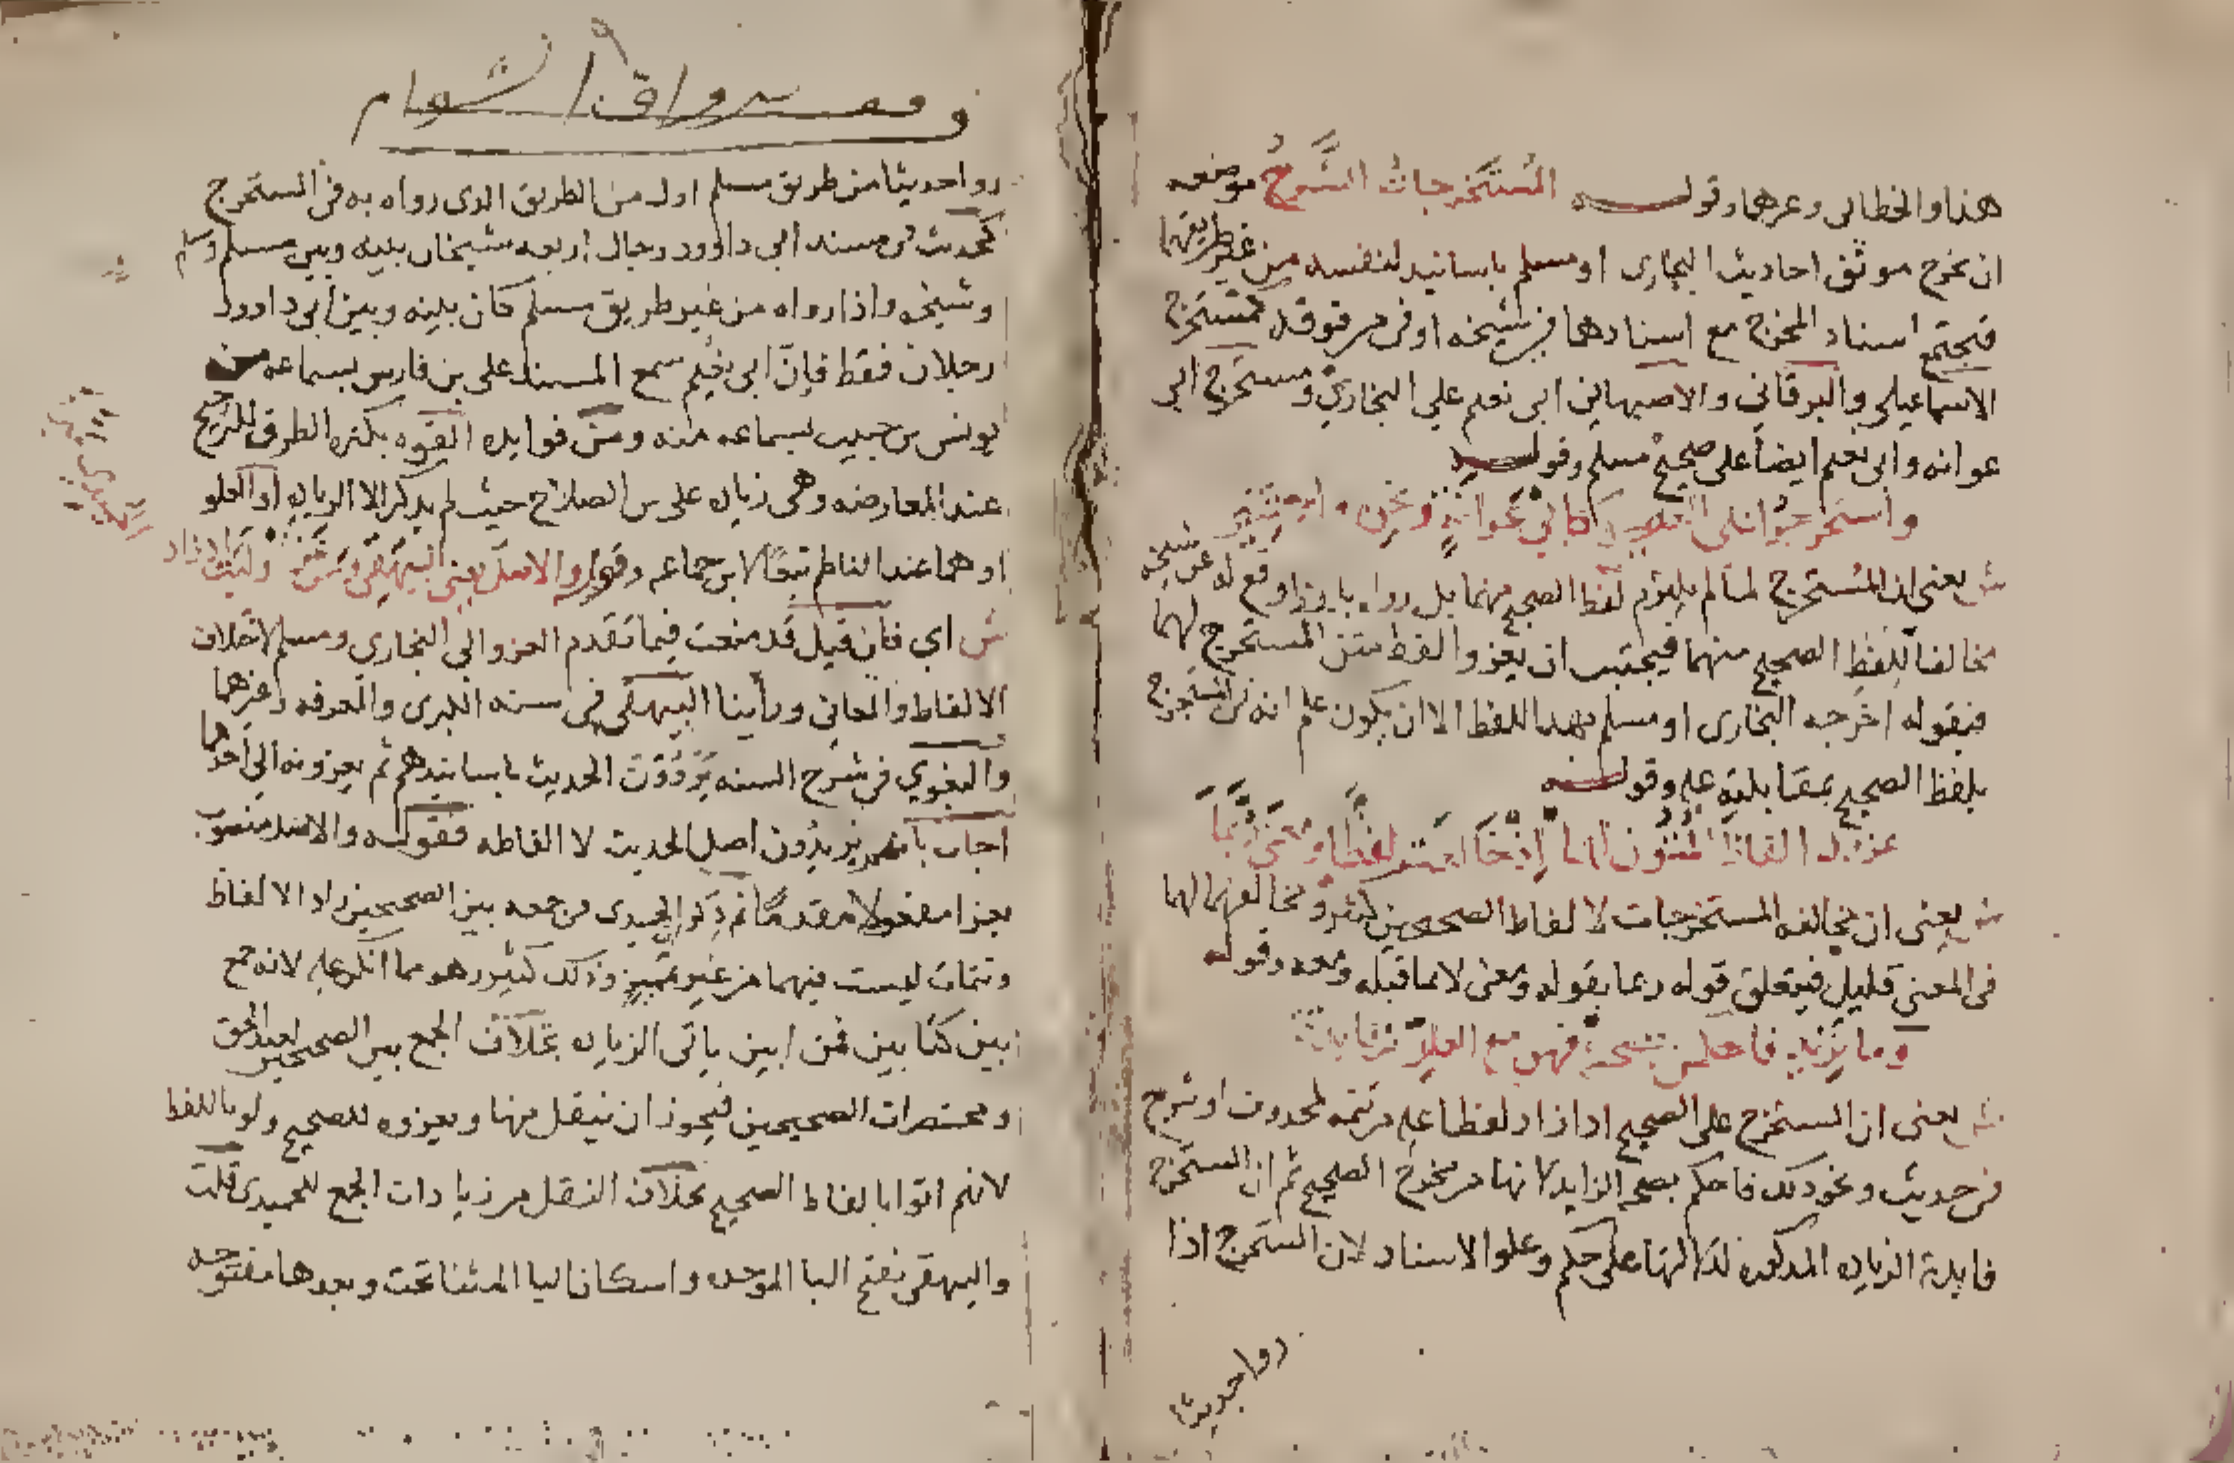 هذا والخطابي وغيرهما وقوله المُسْتَخرجاتُ الشَّرحُ موضعه
ان يخرج موثق احاديث البخارى او مسلم باسانيد لنفسه من غير طريقهما
فيجتمع اسناد المخرج مع اسنادهما في شيخه او في من فوقه كمستخرج
الاسماعيلي والبرقاني والاصبهاني ابى نعيم على البخاري ومستخرج ابي
عوانه وابى نعيم ايضاً على صحيح مسلم وقوله
واستخرجوا على الصحيح كابي عوانةٍ ونحوه واجتنب
ش يعنى ان المُستخرج لما لم يلتزم لفظ الصحيح منهما بل رواه بما وقع له عن شيخه
مخالفاً للفظ الصحيح منهما فيجتنب ان يعزوا لفظ متن المستخرج لهما
فيقوله اخرجه البخارى او مسلم بهذا اللفظ الا ان يكون علم انه في المستخرج
بلفظ الصحيح بمقابلته عليه وقوله
عزوك الفاظ المتون لهما إذ خالفت لفظاً ومعنىً ربما
ش يعنى ان مخالفه المستخرجات لالفاظ الصحيحين كثير ومخالفتهما لهما
فى المعنى قليل فيتعلق قوله ربما بقوله ومعنى لا بما قبله ومعه وقوله
وما تزيد فاحكمن بصحته فهو مع العلو من فائدته
ش يعنى ان المستخرج على الصحيح اذا زاد لفظا عليه من تتمه لمحذوف او شرح
فى حديث ونحو ذلك فاحكم بصحه الزايد لانها من مخرج الصحيح ثم ان المستخرج
فايدة الزياده المذكوره لدلالتها على حكم وعلو الاسناد لان المستخرج اذا
روا حديثا
روا حديثا من طريق مسلم اوله من الطريق الذى رواه به فى المستخرج
كحديث فى مسند ابى داوود رجال اربعه شيخان بينه وبين مسلم ومسلم
وشيخه واذا رواه من غير طريق مسلم كان بينه وبين ابى داوود
رجلان فقط فإنّ ابى نعيم سمع المسند على بن فارس بسماعه من
يونس بن حبيب بسماعه منه ومن فوايده القوه بكثره الطرق للترجيح
عند المعارضه وهى زياده على بن الصلاح حيث لم يذكر الا الزياده او العلو
او هما عند الناظم تبعًا لابن جماعه وقوله والاصل يعنى البيهقي ومن عزا وليت اذ زاد
ش اي فان قيل قد منعت فيما تقدم العزو الي البخارى ومسلم لاختلاف
الالفاظ والمعانى ورأينا البيهقي في سننه الكبرى والمعرفه وغيرهما
والبغوي فى شرح السنه يَرْوُوْن الحديث باسانيدهم ثم يعزونه الى احدهما
اجاب بانهم يريدُون اصل الحديث لا الفاظه فقوله والاصل منصوب
بعزا مفعولا مقدمًا ثم ذكر الحميدى فى جمعه بين الصحيحين زاد الالفاظ
وتتمات ليست فيهما من غير تمييز وذلك كثير وهو مما انكر عليه لانه جمع
بين كتابين فمن اين ياتى الزياده بخلاف الجمع بين الصحيحين لعبد الحق
ومختصرات الصحيحين فيجوز ان ينقل منها ويعزوه للصحيح ولو باللفظ
لانهم اتوا بالفاظ الصحيح بخلاف النقل من زيادات الجمع للحميدى قلت
والبيهقى بفتح البا الموحده واسكان اليا المثنا تحت وبعدها مفتوحه